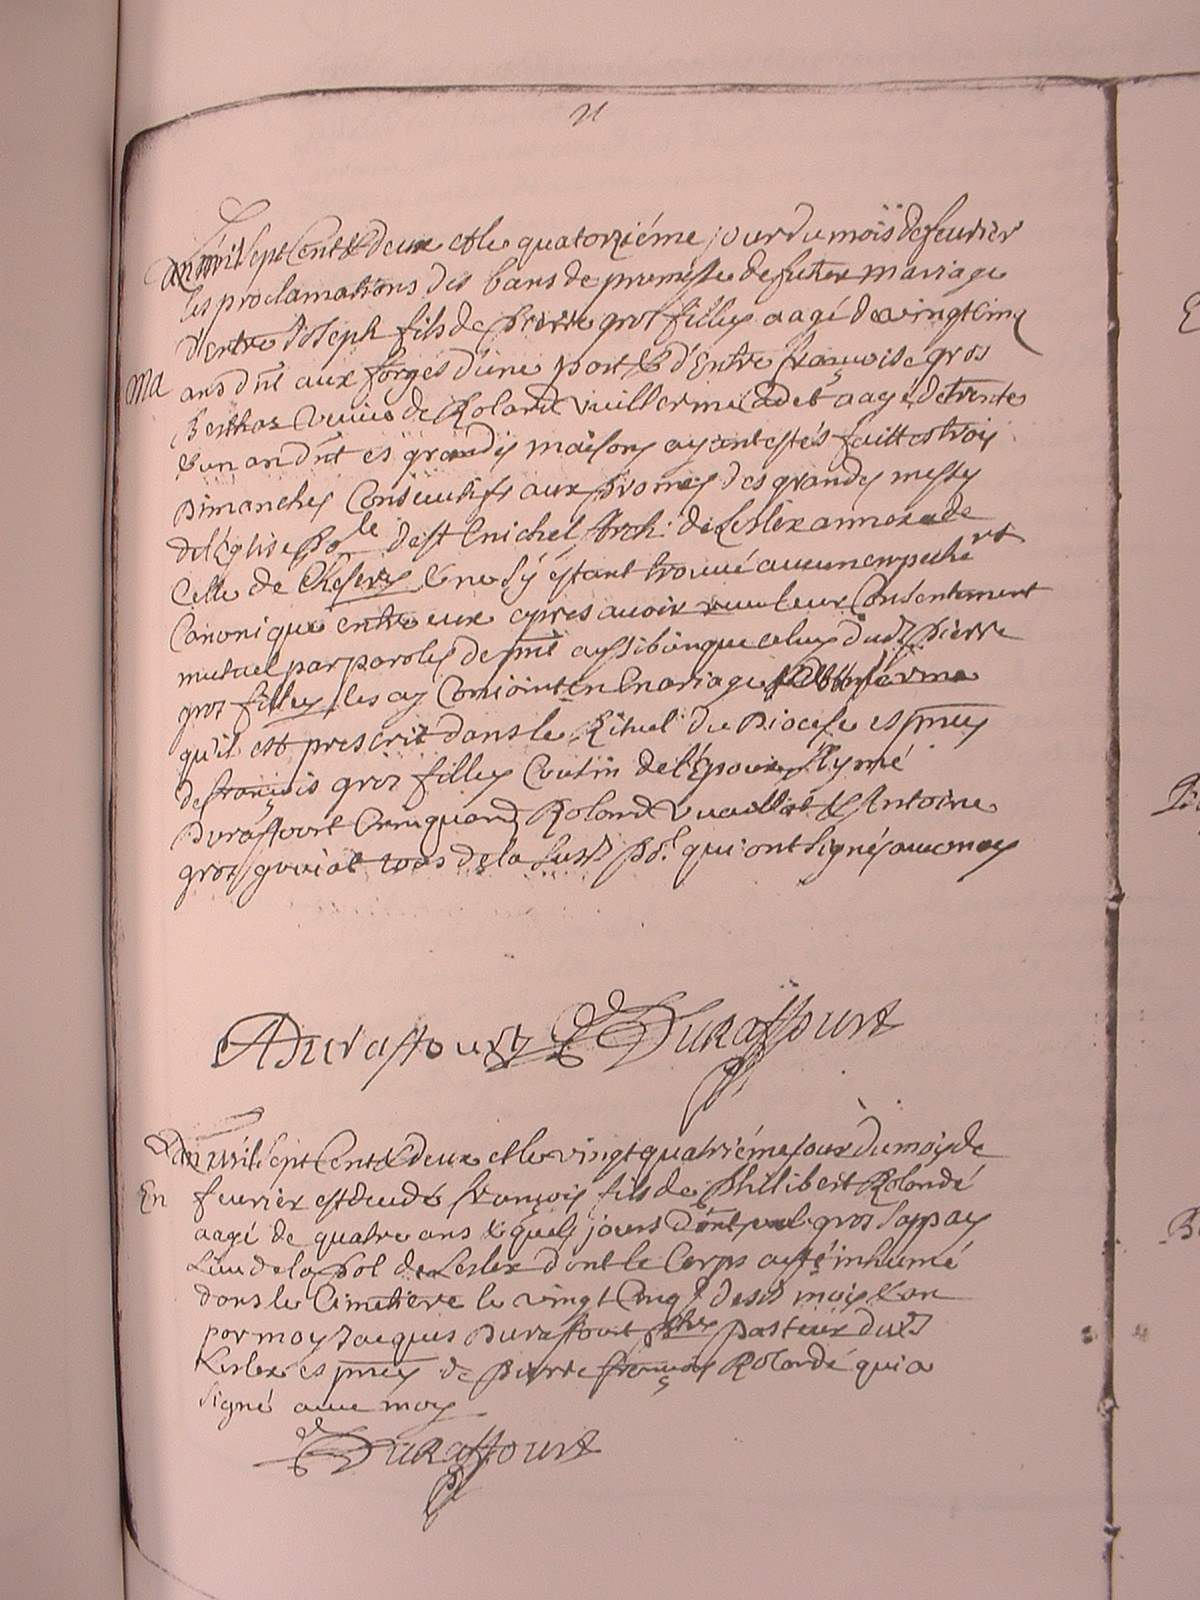 21
L'an mil sept Cent & deux et le quatorziéme jour du mois de feurier
les proclamations des bans de promesse de futur mariage
d'entre Joseph fils de Pierre gros filley aagé de vingt cinq
Ma
ans d'ñt aux forges d'une part & d'Entre françoise gros
Berthoz veuue de Roland vuillerme Cadet aagé de trente
& un an d'ñt es grandes maisons ayant estés faittes trois
Dimanches Consecutifs aux prones des grandes messes
de l'Eglise de st Michel Arch. de Lelex annexe de
Celle de Chesery & ne s'ÿ éstant trouué aucun empeche nt
Canonique entre eux apres auoir leur Consentement
mutuel par paroles de pñt aussi bien que celuy dud Pierre
gros filley les ay Conjoint en Mariage forme
qu'il est prescrit dans le Rituel du Diocese es pñces
de françois gros filley Cousin de l'Epoux Aymé
Duraffourt Roland & Antoine
gros guriat tous de la susd qui ont signés auec moy
ADuraffourt Duraffourt
L'an mil sept Cent & deux et le vingt quatriéme jour du mois de
En
feurier est decedé françois fils de Philibert Rolandé
aagé de quatre ans & quelq jours gros sappay
Lieu de la de Lelex dont le Corps a esté inhumé
dans le Cimetiere le vingt Cinq desd mois & an
par moy Jacques Duraffourt pbre pasteur dud
Lelex es pñces de Pierre françois Rolandé qui a
signé auec moy
Duraffourt